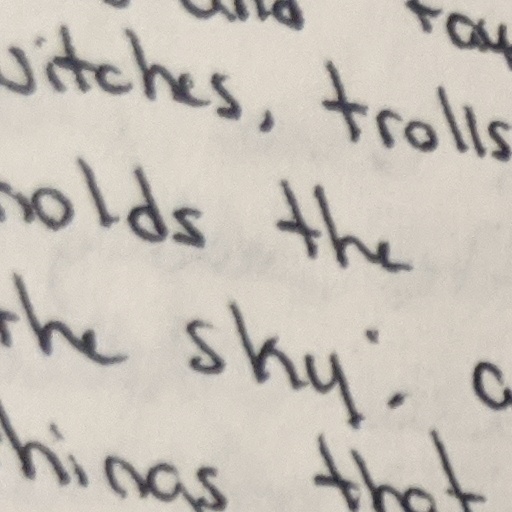 and
witches, trolls
holds the
the sky.
things that